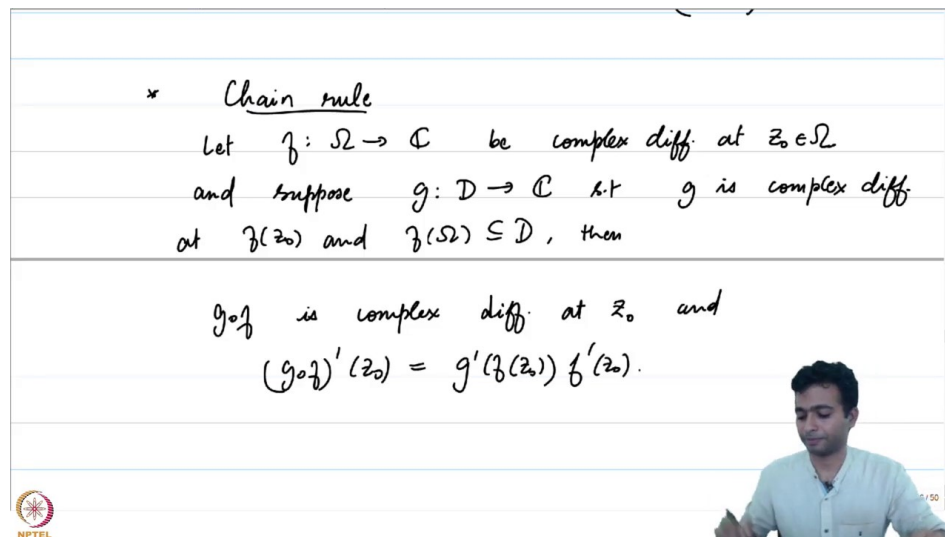 * Chain rule
Let f: Ω → ℂ be complex diff. at z₀ ∈ Ω
and suppose g: D → ℂ s.t g is complex diff.
at f(z₀) and f(Ω) ⊆ D, then
g∘f is complex diff. at z₀ and
(g∘f)'(z₀) = g'(f(z₀)) f'(z₀).
/ 50
NPTEL